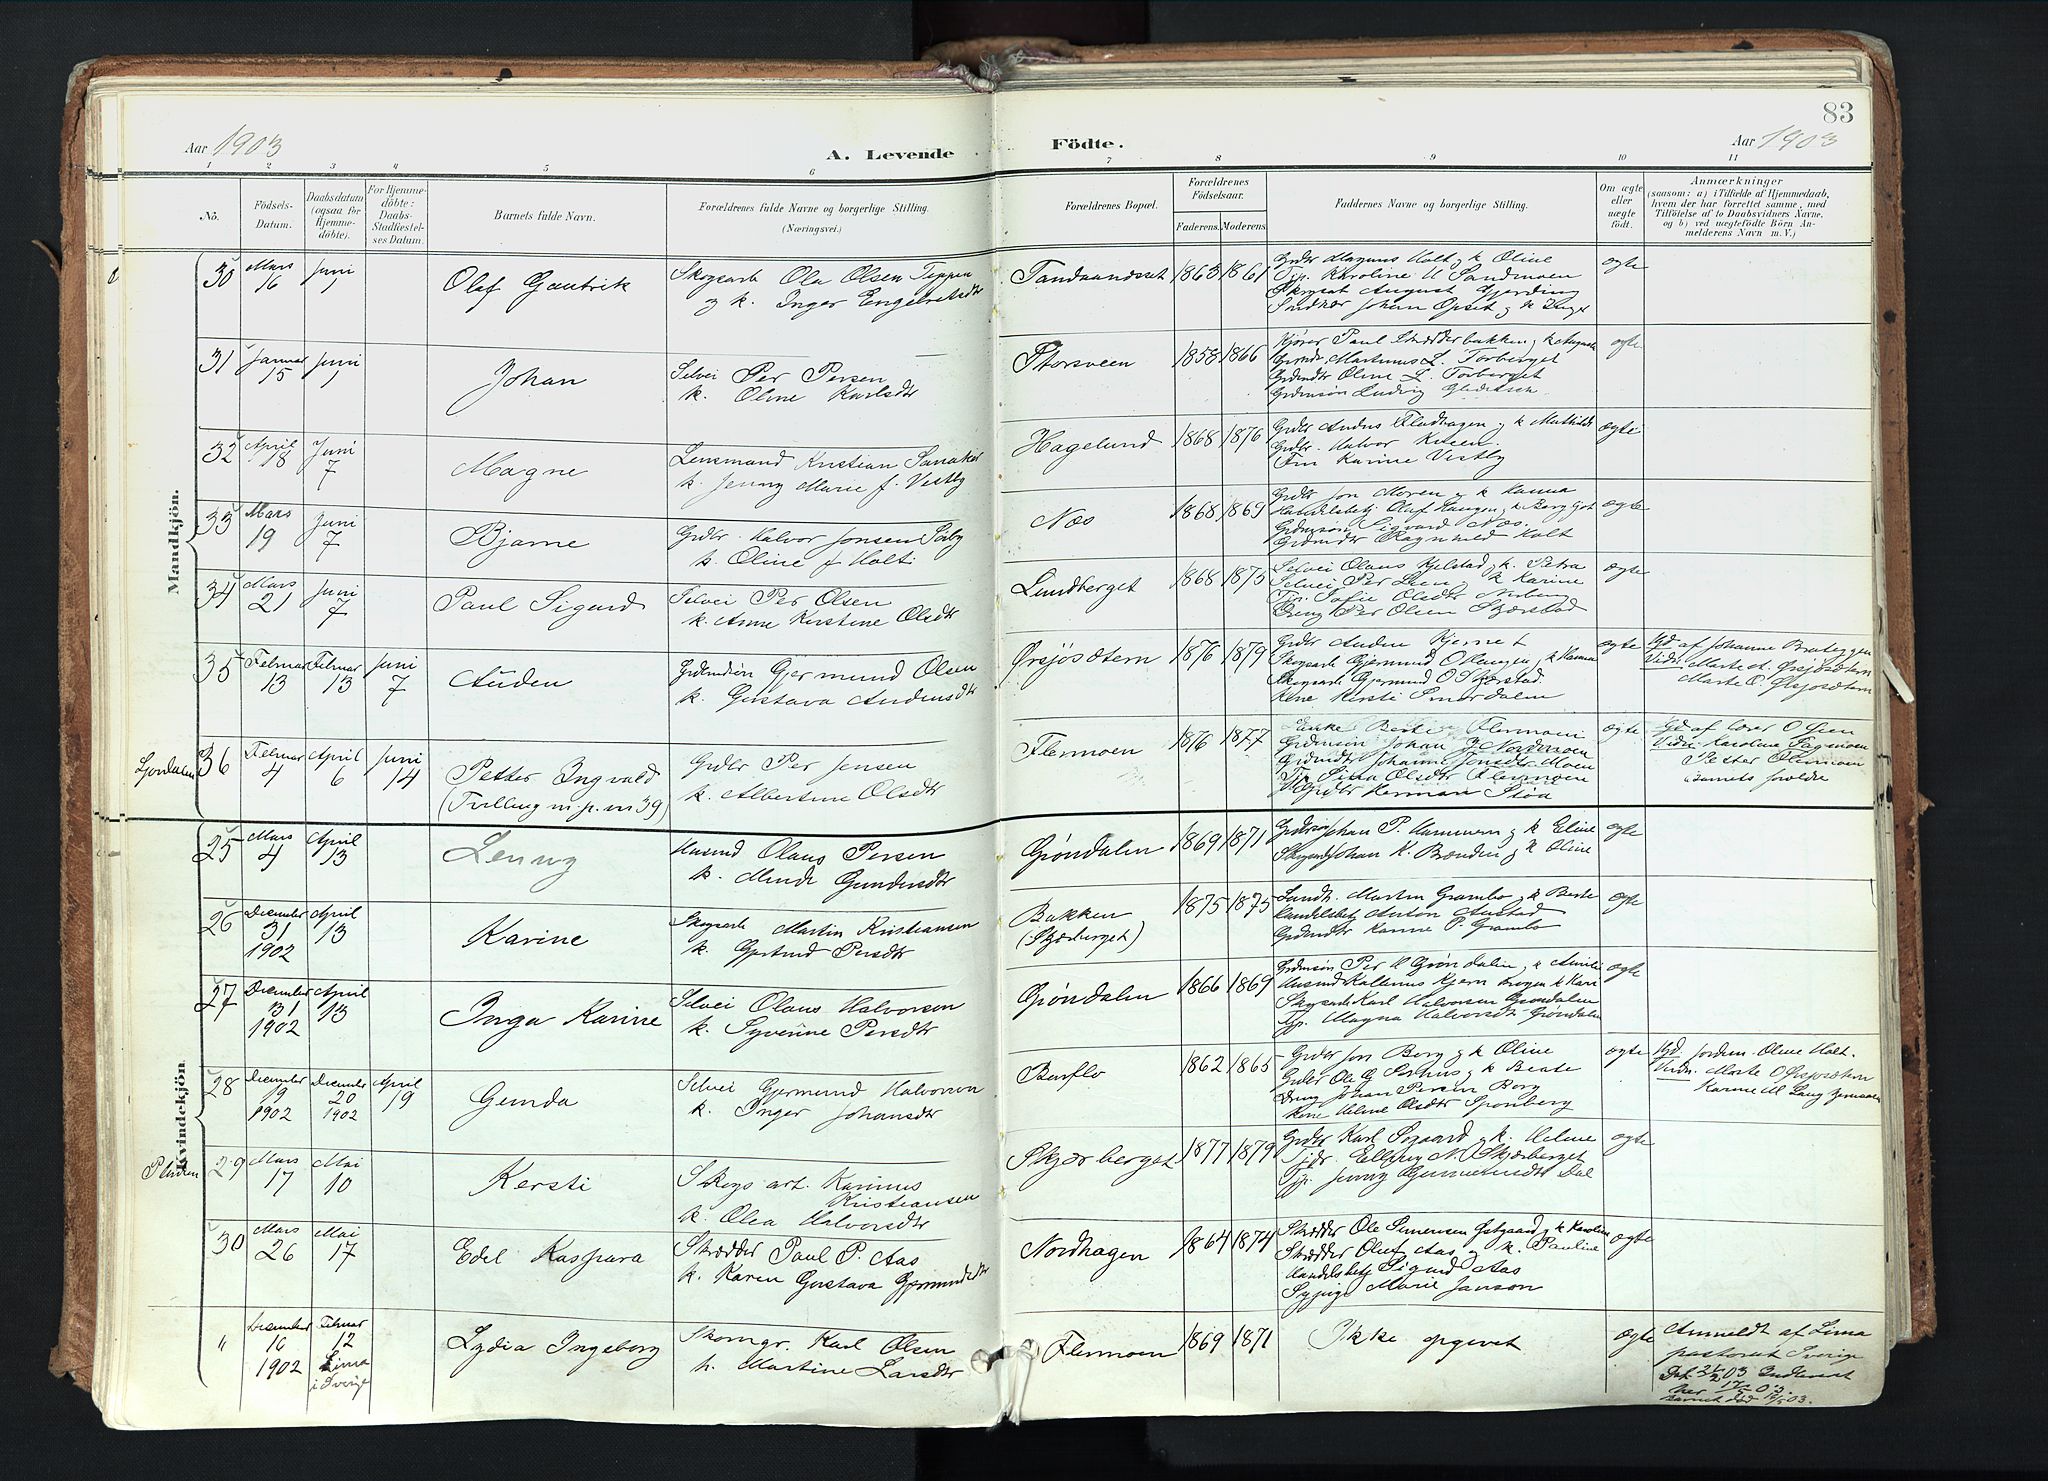 83
Aar 1903
A. Levende
Födte.
Aar 1903
1 2 3 4 5 6 7 8 9 10 11
No.
Födsels-Datum.
Daabsdatum (ogsaa for Hjemmedöbte).
For Hjemmedöbte: Daabs-Stadfæstelses Datum.
Barnets fulde Navn.
Forældrenes fulde Navne og borgerlige Stilling. (Næringsvei.)
Forældrenes Bopæl.
Forældrenes Födselsaar.
Faderens. Moderens.
Faddernes Navne og borgerlige Stilling.
Om ægte eller uægte födt.
Anmærkninger
(saasom: a) i Tilfælde af Hjemmedaab,
hvem der har forrettet samme, med
Tilföielse af to Daabsvidners Navne,
og b) ved uægtefödte Börn An-
melderens Navn m. V.)
Mandkjön.
30 Mars 16 Juni 1
Olaf Gautrik
Skogsarb Ola Olsen Teppen
og k. Inger Engebretsdtr
Tandaandsæt 1863 1861
Grdbr Magnus Holt og k Oline
Tip. Karoline H Sandmoen
Skogsarb August Gjerding
Smdbr Johan Opset og k Inger
ægte
31 Januar 15 Juni 1
Johan
Selvei Per Persen
k. Oline Karlsdtr
Storsveen 1858 1866
Kjører Paul Skredderbakken og k Augusta
Grdbr. Martinus L. Torberget
Grdmdtr Oline L. Torberget
Grdmsøn Ludvig
ægte
32 April 18 Juni 7
Magne
Lensmand Kristian Sanaker
k. Jenny Marie f. Vestby
Hagelund 1868 1876
Grdbr Anders Fladhagen og k Mathilde
Grdbr. Halvor Kveen.
Frn Karine Vestby
ægte
33 Mars 19 Juni 7
Bjarne
Grdbr. Halvor Jonsen Sæby
k. Oline f Holt
Næs 1868 1869
Grdbr Jon Moren og k Hanna
Handelsbetj Olaf Haugen og k Borghild
Grdmsøn Sigvard Næs.
Grdmdtr Ragnhild Holt
ægte
34 Mars 21 Juni 7
Paul Sigurd
Selvei Per Olsen
k. Anne Kirstine Olsdtr
Lundberget 1868 1875
Selvei Olaus Kjelstad og k. Petra
Selvei Per Lien og k Karine
Tip. Sofie Olsdtr Norberg
Dreng Per Olsen Skjærstad
ægte
35 Februar 13 Februar 13 Juni 7
Auden
Grdmdsøn Gjermund Olsen
k. Gustava Andersdtr
Ørsjøsætern 1876 1879
Grdbr Auden Kjernet
Skogsarb Gjermund O Haugen og k Hanna
Skogsarb Gjermund O Skjærstad
Kone Kersti Smørdalen
ægte
Hjd af Johanne Brateggen
Vidn. Marte A. Ørsjøsætern
Marte O. Ørsjøsætern
Ljørdalen
36 Februar 4 April 6 Juni 14
Petter Ingvald
(Tvilling m. p. m 39)
Grdbr Per Jensen
k. Albertine Olsdtr
Flermoen 1876 1877
Enke Berte Flermoen
Grdmsøn Johan P. Nordmoen
Grdmdtr Johanne Jonsdtr Moen
Tip Sina Olsdtr Flermoen
Grdbr Herman Støa
ægte
Hjd af Lærer O Green
Vidn. Karoline Fagmoen
Petter Flermoen
Barnets forældre
Kvindekjön
25 Mars 4 April 13
Lenny
Husmd Olaus Persen
k. Minda Gundersdtr
Grøndalen 1869 1871
Grdmsøn Johan P. Hammeren og k Eline
Skogsarb Johan K. Brænden og k Oline
ægte
26 December 31 1902 April 13
Karine
Skogsarb Martin Kristiansen
k. Gjertrud Persdtr
Bakken (Skjæberget) 1875 1875
Landh. Martin Grambo og k Berte
Handelsbetj Anton Austad
Grdmdtr Karine P. Grambo
ægte
27 December 31 1902 April 13
Inga Karine
Selvei Olaus Halvorsen
k. Syverine Persdtr
Grøndalen 1866 1869
Grdmsøn Per H Grøndalen og k Amelie
Skogsarb Karl Halvorsen Grøndalen
Tip. Magna Halvorsdtr Grøndalen
ægte
28 December 19 1902 December 20 1902 April 19
Gunda
Selvei Gjermund Halvorsen
k. Inger Johansdtr
Barflo 1862 1865
Grdbr Jon Borg og k Oline
Grdbr Ole G Sorhus og k Beate
Dreng Johan Persen Borg
Kone Helene Olsdtr Sponberg
ægte
Hjd. Jordm. Oline Holt.
Vidn. Marte O Ørsjøsætern
Karine M Lang
29 Mars 17 Mai 10
Kersti
Skogsarb. Karinus Kristiansen
k. Olea Halvorsdtr
Skjærberget 1877 1879
Grdbr Karl Sogaard og k. Helene
Tjdr. Ellfrey N. Skjærberget
Tip Jenny Gunnerinusdtr Dal
ægte
30 Mars 26 Mai 17
Edel Kaspara
Skrædder Paul P. Aas
k. Karen Gustava Gjermundsdtr
Nordhagen 1864 1874
Skrædder Ole Simensen Østgaard og k Karoline
Skrædder Oluf Aas og k. Pauline
Handelsbetj Sigurd Aas
Sypige Marie Janson
ægte
" December 16 1902 Februar 12 Lima i Sverige
Lydia Ingeborg
Skomgr. Karl Olsen
k. Martine Larsdtr
Flermoen 1869 1871
Ikke opgivet
ægte
Anmeldt af Lima
pastorat Sverige